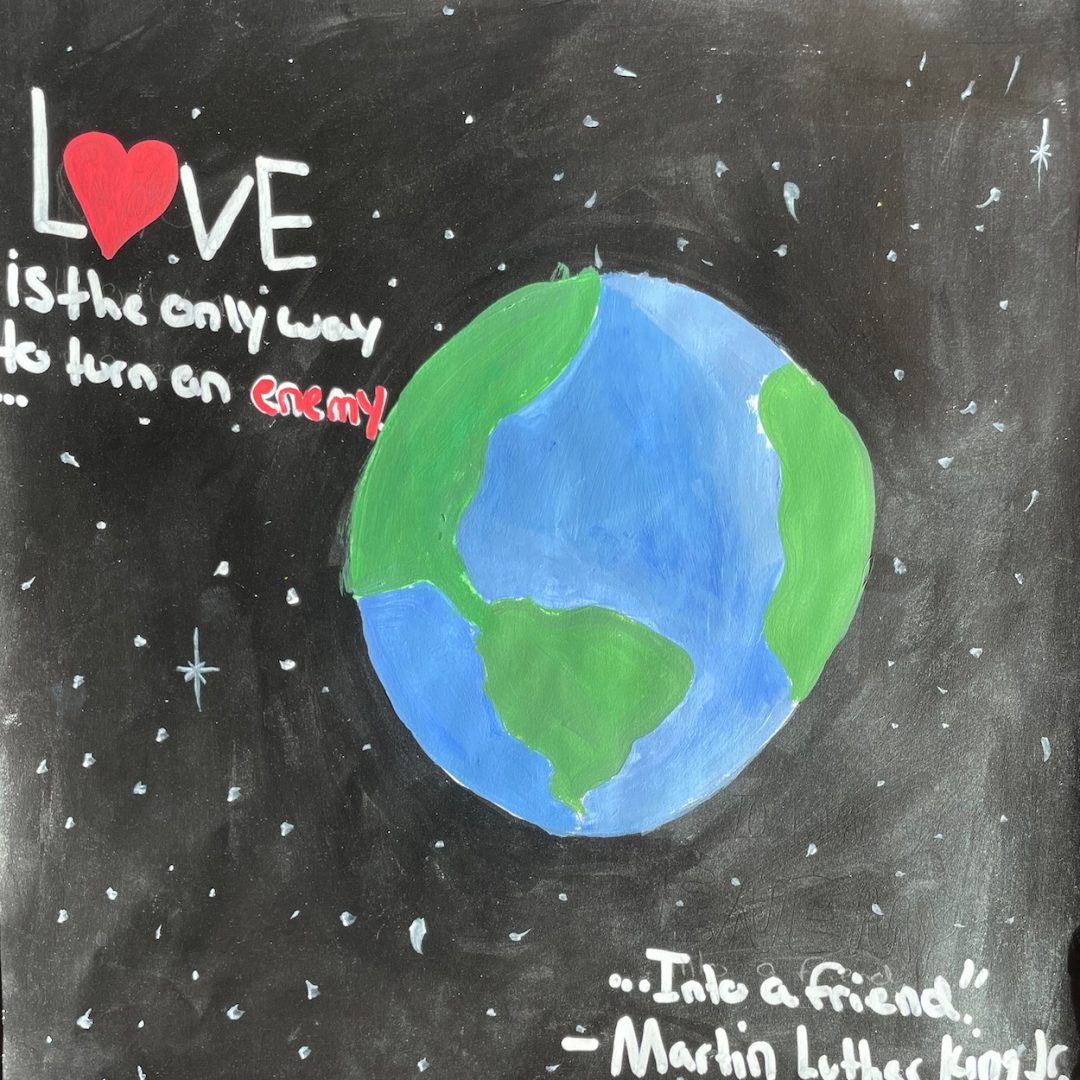 LOVE
is the only way
to turn an enemy
...
...Into a friend."
- Martin Luther King Jr.